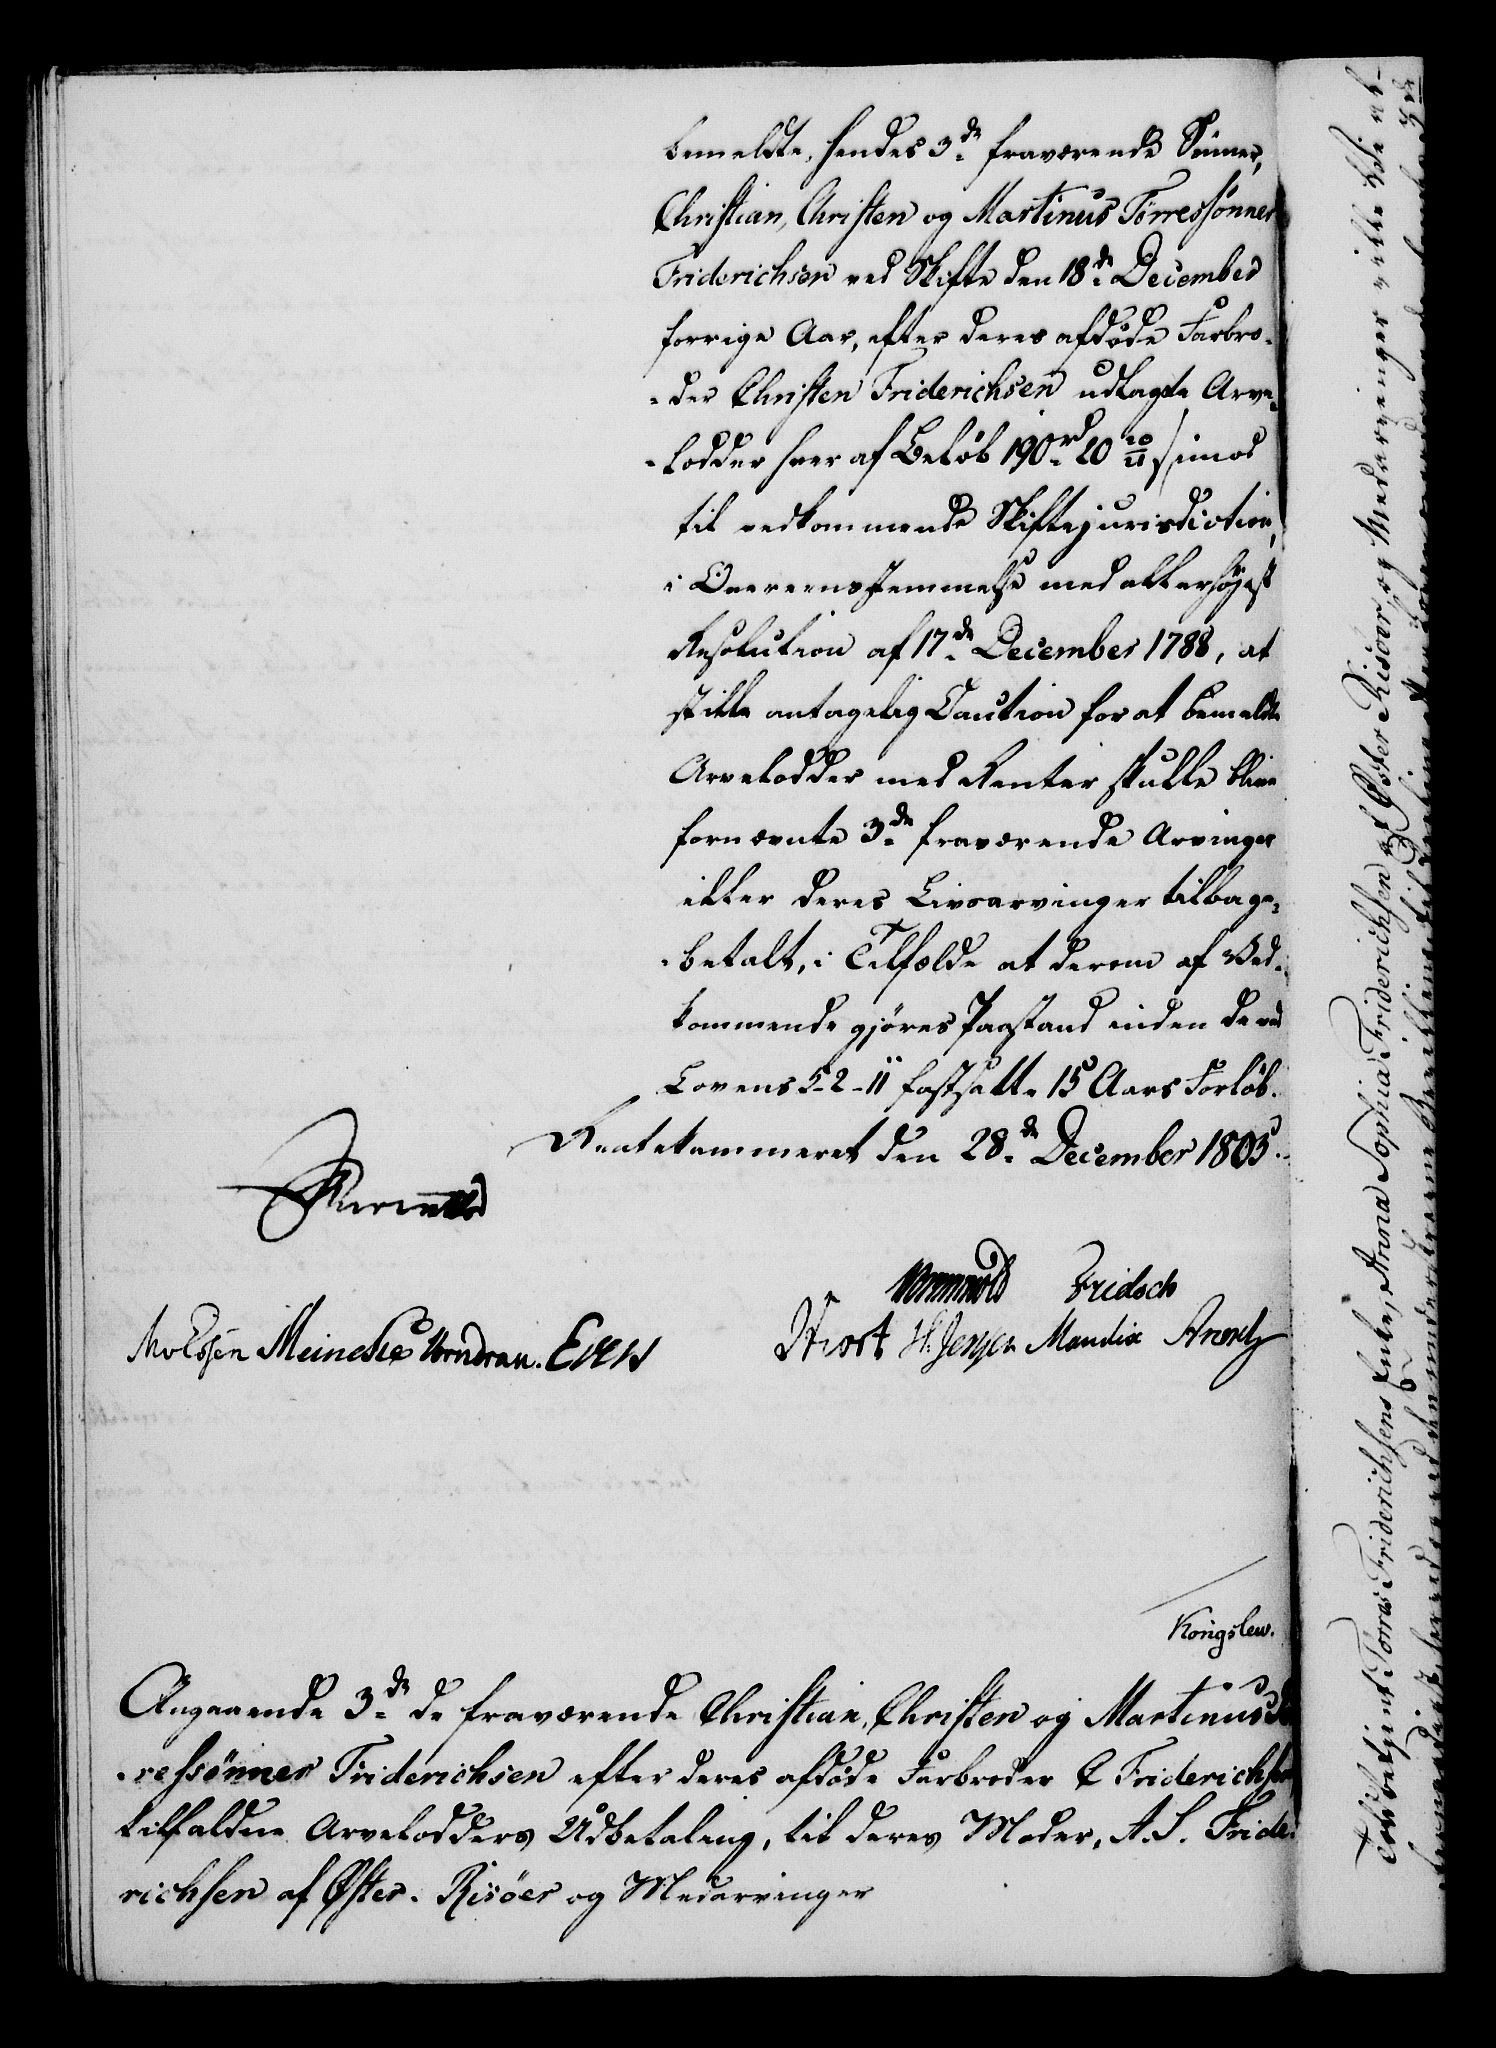 bemeldte, hendes 3de fraværende Sønner,
Christian, Christen og Martinus Törressönner
Friderichsen ved Skifte den 18de December
forrige Aar, efter deres afdøde Farbro-
-der Christen Friderichsen udlagte Arve-
-lodder hver af Beløb 190 rd 20 10/11 s imod
til vedkommende Skiftejurisdiction,
i Overeensstemmelse med allerhøjest
Resolution af 17de December 1788, at
stille antagelig Caution for at bemeldte
Arvelodder med Renter skulle blive
fornævnte 3de fraværende Arvinger
eller deres Livsarvinger tilbage-
-betalt, i Tilfælde at derom af Ved-
kommende gjøres Paastand inden de ved
Lovens 5-2-11 fastsatte 15 Aars Forløb.
Rentekammeret den 28de December 1803.
Wormskiold Fridsch
Meinche Vondrau. Ewn
Wiort H. Jensen Mandix
Kongslew.
Angaaende 3de de fraværende Christian, Christen og Martinus
-ressönner Friderichsen efter deres afdøde Farbroder C Friderichsen
tilfaldne Arvelodders Udbetaling, til deres Moder, A. S. Fride-
richsen af Øster-Risöer og Medarvinger
Torres Friderichsens Enke, Anna Sophia Friderichsen af Øster Risöer og Medarvinger